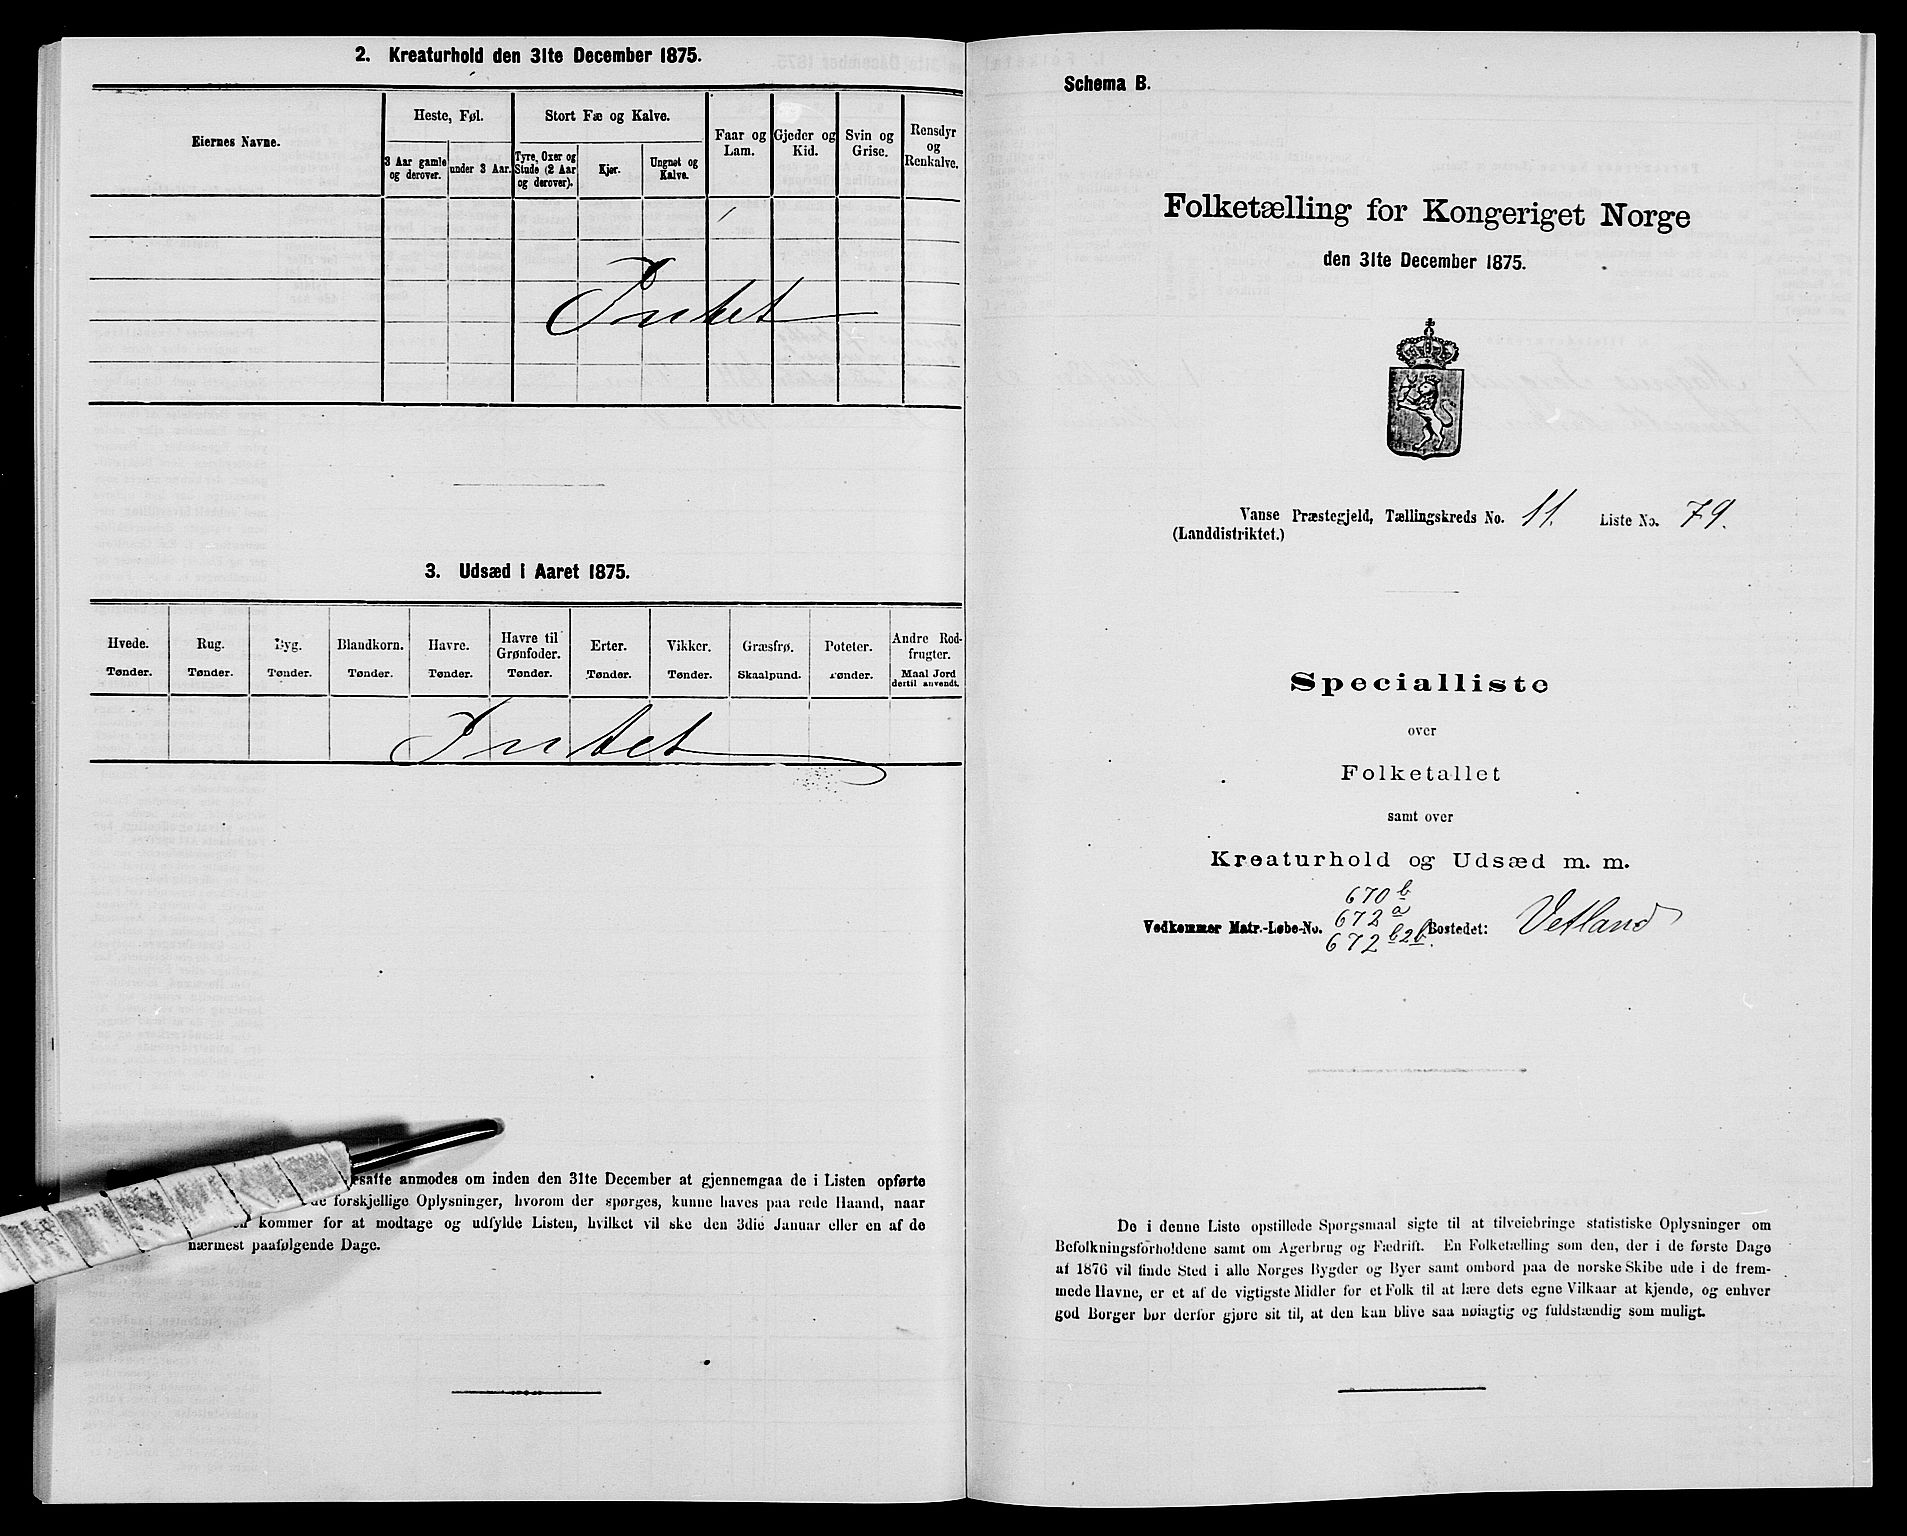 2. Kreaturhold den 31te December 1875.
Eiernes Navne.
Heste, Føl.
3 Aar gamle og derover.
under 3 Aar.
Stort Fæ og Kalve.
Tyre, Oxer og Stude (2 Aar og derover).
Kjør.
Ungnøt og Kalve.
Faar og Lam.
Gjeder og Kid.
Svin og Grise.
Rensdyr og Renkalve.
Intet
3. Udsæd i Aaret 1875.
Hvede. Rug. Byg. Blandkorn. Havre. Havre til Grønfoder. Erter. Vikker. Græsfrø. Poteter. Andre Rodfrugter.
Tønder. Tønder. Tønder. Tønder. Tønder. Tønder. Tønder. Tønder. Skaalpund. Tønder. Maal Jord dertil anvendt.
Intet
anmodes om inden den 31te December at gjennemgaa de i Listen opførte
forskjellige Oplysninger, hvorom der spørges, kunne haves paa rede Haand, naar
kommer for at modtage og udfylde Listen, hvilket vil ske den 3die Januar eller en af de
nærmest paafølgende Dage.
Schema B.
Folketælling for Kongeriget Norge
den 31te December 1875.
Vanse Præstegjeld, Tællingskreds No. 11. Liste No. 79.
(Landdistriktet.)
Specialliste
over
Folketallet
samt over
Kreaturhold og Udsæd m. m.
670 b
672 a
Vedkommer Matr.-Løbe-No. 672 b2b. Bostedet: Vetland
De i denne Liste opstillede Spørgsmaal sigte til at tilveiebringe statistiske Oplysninger om
Befolkningsforholdene samt om Agerbrug og Fædrift. En Folketælling som den, der i de første Dage
af 1876 vil finde Sted i alle Norges Bygder og Byer samt ombord paa de norske Skibe ude i de frem-
mede Havne, er et af de vigtigste Midler for et Folk til at lære dets egne Vilkaar at kjende, og enhver
god Borger bør derfor gjøre sit til, at den kan blive saa nøiagtig og fuldstændig som muligt.